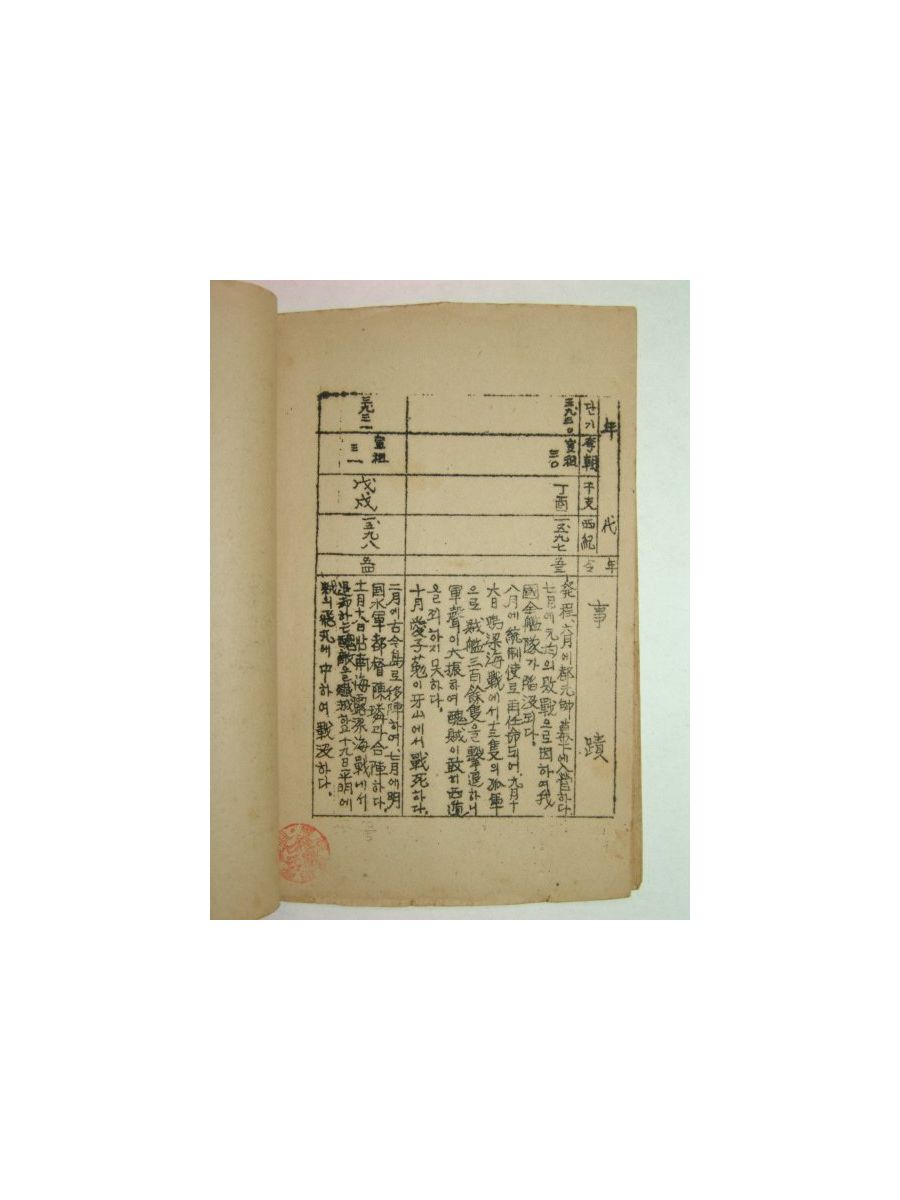 年代
단기
李朝
干支
西紀
年
事蹟
三九三〇
宣祖
三〇
丁酉
一五九七
發程、六月에都元帥幕下에入營하다.
七月에元均의敗戰으로因하여我
國全艦隊가陷沒되다.
八月에統制使로再任命되어、九月十
六日鳴梁海戰에서十三隻의孤軍
으로賊艦三百餘隻을擊退하니
軍聲이大振하여醜賊이敢히西進
을괴하지못하다.
十月愛子葂이牙山에서戰死하다.
三九三一
宣祖
三一
戊戌
一五九八
二月에古今島로移陣하여、七月에明
國水軍都督陳璘과合陣하다.
十一月十八日南海露梁海戰에서
十九日平明에
賊의飛丸에中하여戰沒하다.